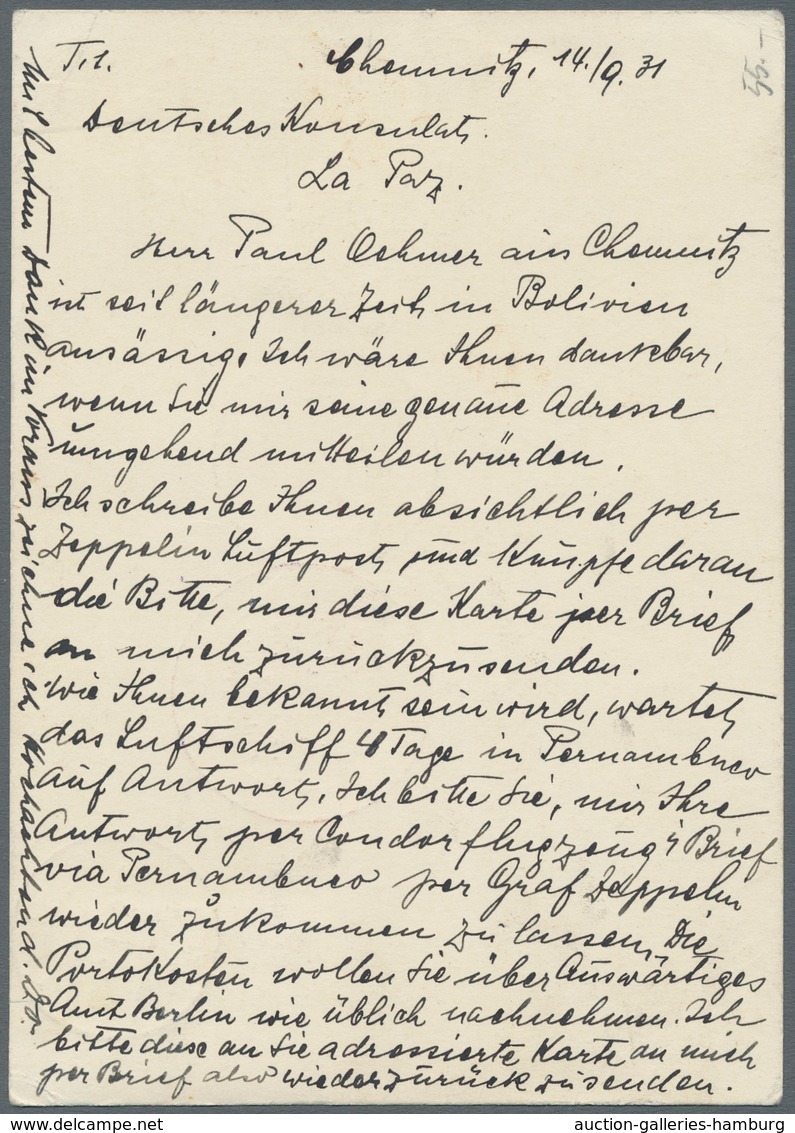 T.1.
Chemnitz, 14./9.31
55.–
Deutsches Konsulat.
La Paz.
Herr Paul Oehmer aus Chemnitz
ist seit längerer Zeit in Bolivien
ansässig. Ich wäre Ihnen dankbar,
wenn Sie mir seine genaue Adresse
umgehend mitteilen würden.
Ich schreibe Ihnen absichtlich per
Zeppelin Luftpost, und knüpfe daran
die Bitte, mir diese Karte per Brief
an mich zurückzusenden.
Wie Ihnen bekannt sein wird, wartet
das Luftschiff 4 Tage in Pernambuco
auf Antwort. Ich bitte Sie, mir Ihre
Antwort, per Condorflugzeug Brief
via Pernambuco per Graf Zeppelin
wieder zukommen zu lassen. Die
Portokosten wollen Sie über Auswärtiges
Amt Berlin wie üblich nachnehmen. Ich
bitte diese an Sie adressierte Karte an mich
per Brief also wieder zurück zu senden.
Mit bestem Dank im Voraus, zeichne ich Hochachtend.
auction-galleries-hamburg